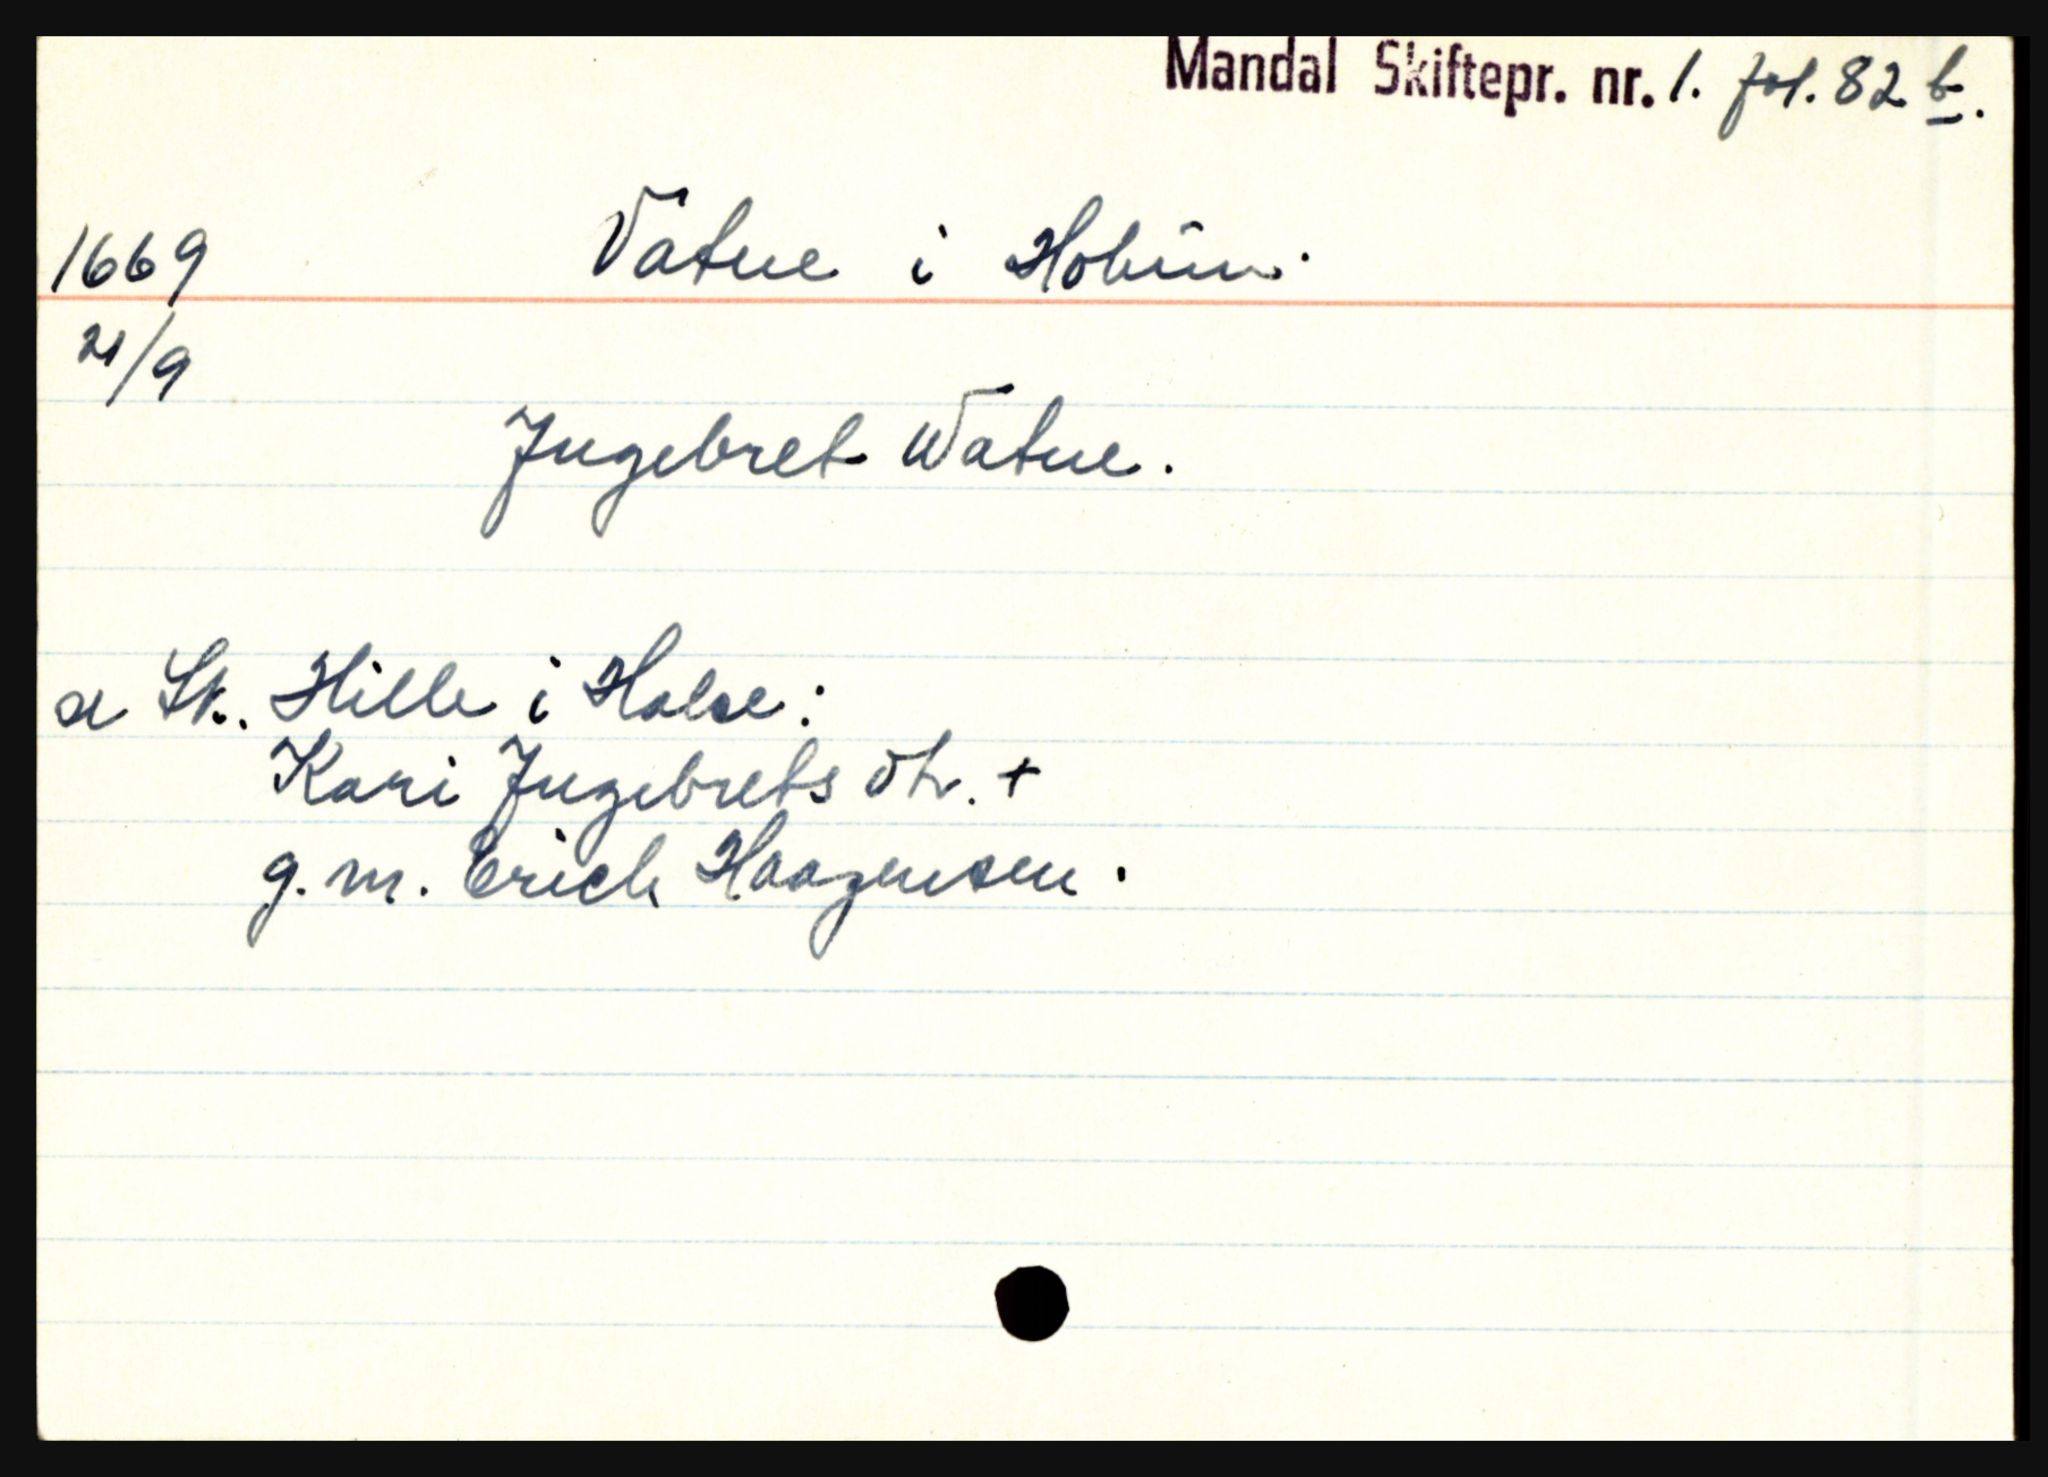 Mandal Skiftepr. nr. 1. fol. 82 b.
1669 Vatne i Holum.
21/9
Jngebret Watne.
se Sk. Hille i Halse:
Kari Jngebrets dtr. +
g. m. Erich Haagensen.